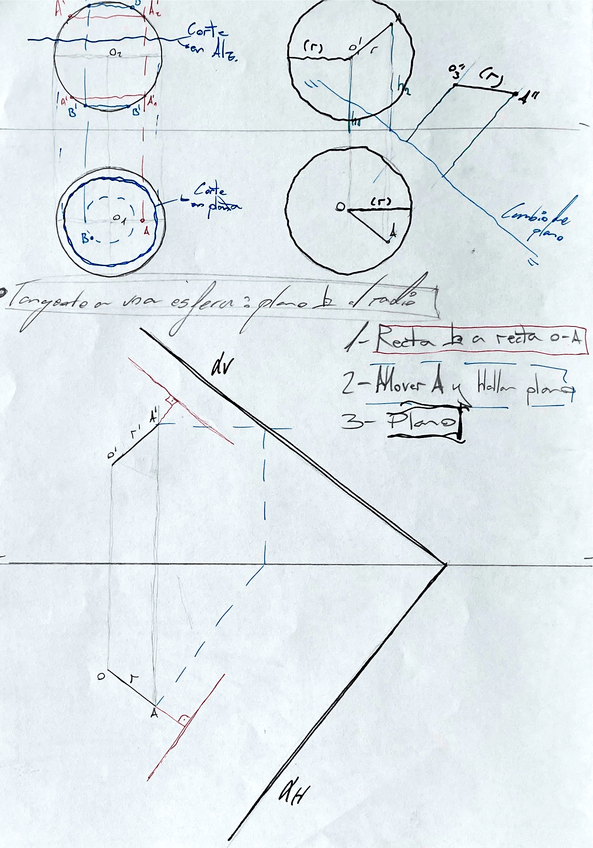 A' A'₂ B'
Corte
en Alz.
O₂
A' A'₁
B' B'
O₁ A
B•
Corte
en planta
(r) O' r A'
h₂
h₁
O'' (r) A''
O (r)
A
Cambio de
plano
• Tangente a una esfera: plano ⊥ al radio
1- Recta ⊥ a recta O-A
2- Mover A y Hallar plano
3- Plano
αv
O' r' A'
O r
A
αH